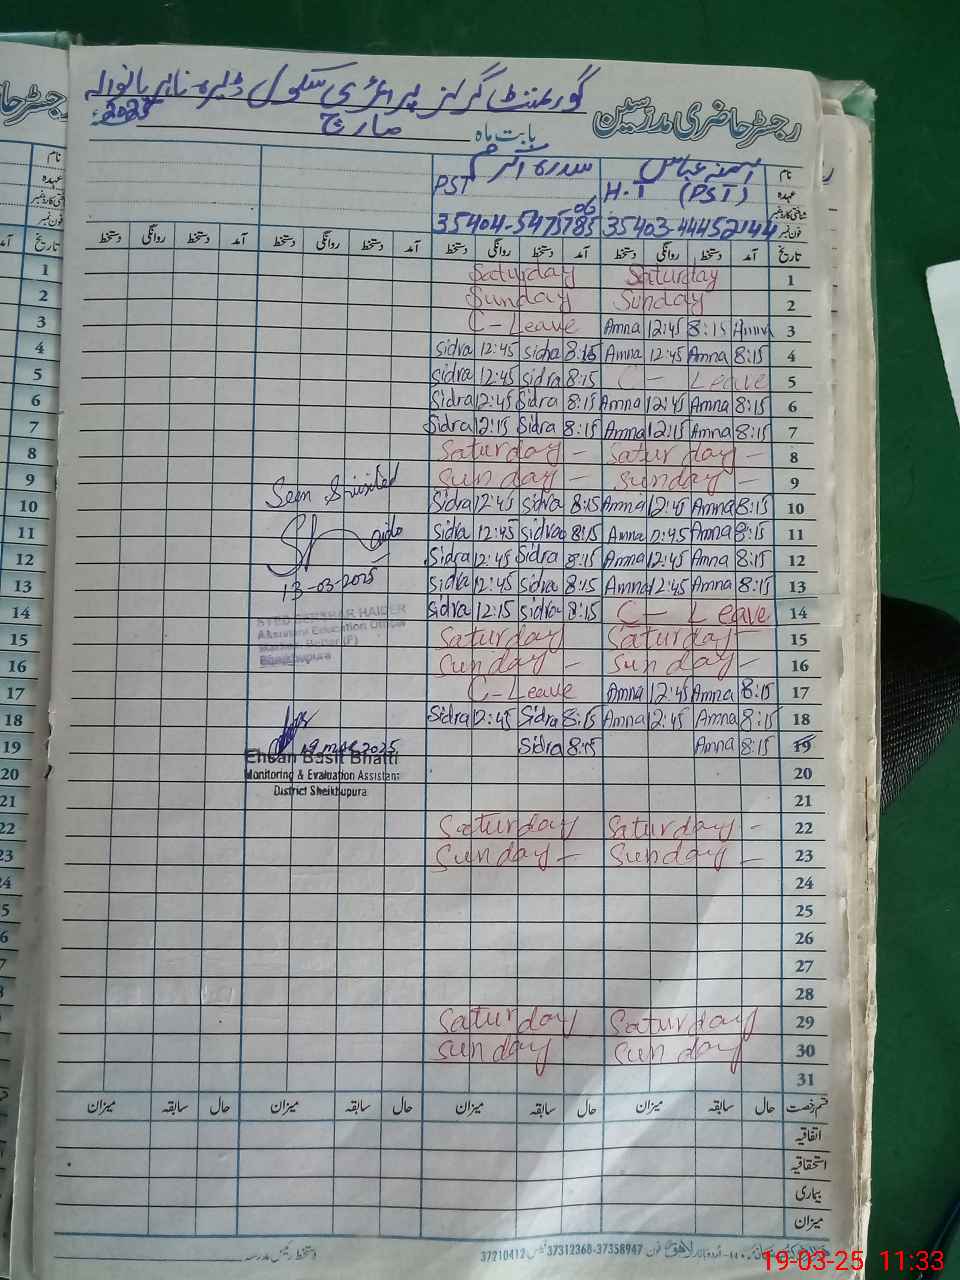 گورنمنٹ گرلز پرائمری سکول ڈیرہ
رجسٹر حاضری مدرسین
بابت ماہ مارچ 2025ء
نام آمنہ عباس سدرہ اکرم
عہدہ H.T (PST) PST
فون نمبر
تاریخ آمد دستخط روانگی دستخط آمد دستخط روانگی دستخط آمد دستخط روانگی دستخط آمد دستخط روانگی دستخط
Saturday Saturday 1
Sunday Sunday 2
C-Leave Amna 12:45 8:15 Amna 3
Sidra 12:45 Sidra 8:15 Amna 12:45 Amna 8:15 4
Sidra 12:45 Sidra 8:15 C- Leave 5
Sidra 12:45 Sidra 8:15 Amna 12:45 Amna 8:15 6
Sidra 12:15 Sidra 8:15 Amna 12:15 Amna 8:15 7
Saturday - Saturday - 8
Sunday - Sunday - 9
Seen & visited
Sidra 12:45 Sidra 8:15 Amna 12:45 Amna 8:15 10
Sidra 12:45 Sidra 8:15 Amna 12:45 Amna 8:15 11
Sidra 12:45 Sidra 8:15 Amna 12:45 Amna 8:15 12
13-03-2025
Sidra 12:45 Sidra 8:15 Amna 12:45 Amna 8:15 13
HAIDER
Assistant Education Officer
Sheikhupura
Sidra 12:15 Sidra 8:15 C- Leave 14
Saturday Saturday - 15
Sunday - Sunday - 16
C-Leave Amna 12:45 Amna 8:15 17
Sidra 12:45 Sidra 8:15 Amna 12:45 Amna 8:15 18
19 mar 2025
Ehsan Basit Bhatti
Monitoring & Evaluation Assistant
District Sheikhupura
Sidra 8:15 Amna 8:15 19
20
21
Saturday Saturday - 22
Sunday - Sunday - 23
24
25
26
27
28
Saturday Saturday 29
Sunday Sunday 30
31
قسم رخصت حال سابقہ میزان حال سابقہ میزان حال سابقہ میزان حال سابقہ میزان
اتفاقیہ
استحقاقیہ
بیماری
میزان
دستخط رئیس مدرسہ
اردو بازار لاہور فون 37312368-37358947 فیکس 37210412
19-03-25 11:33